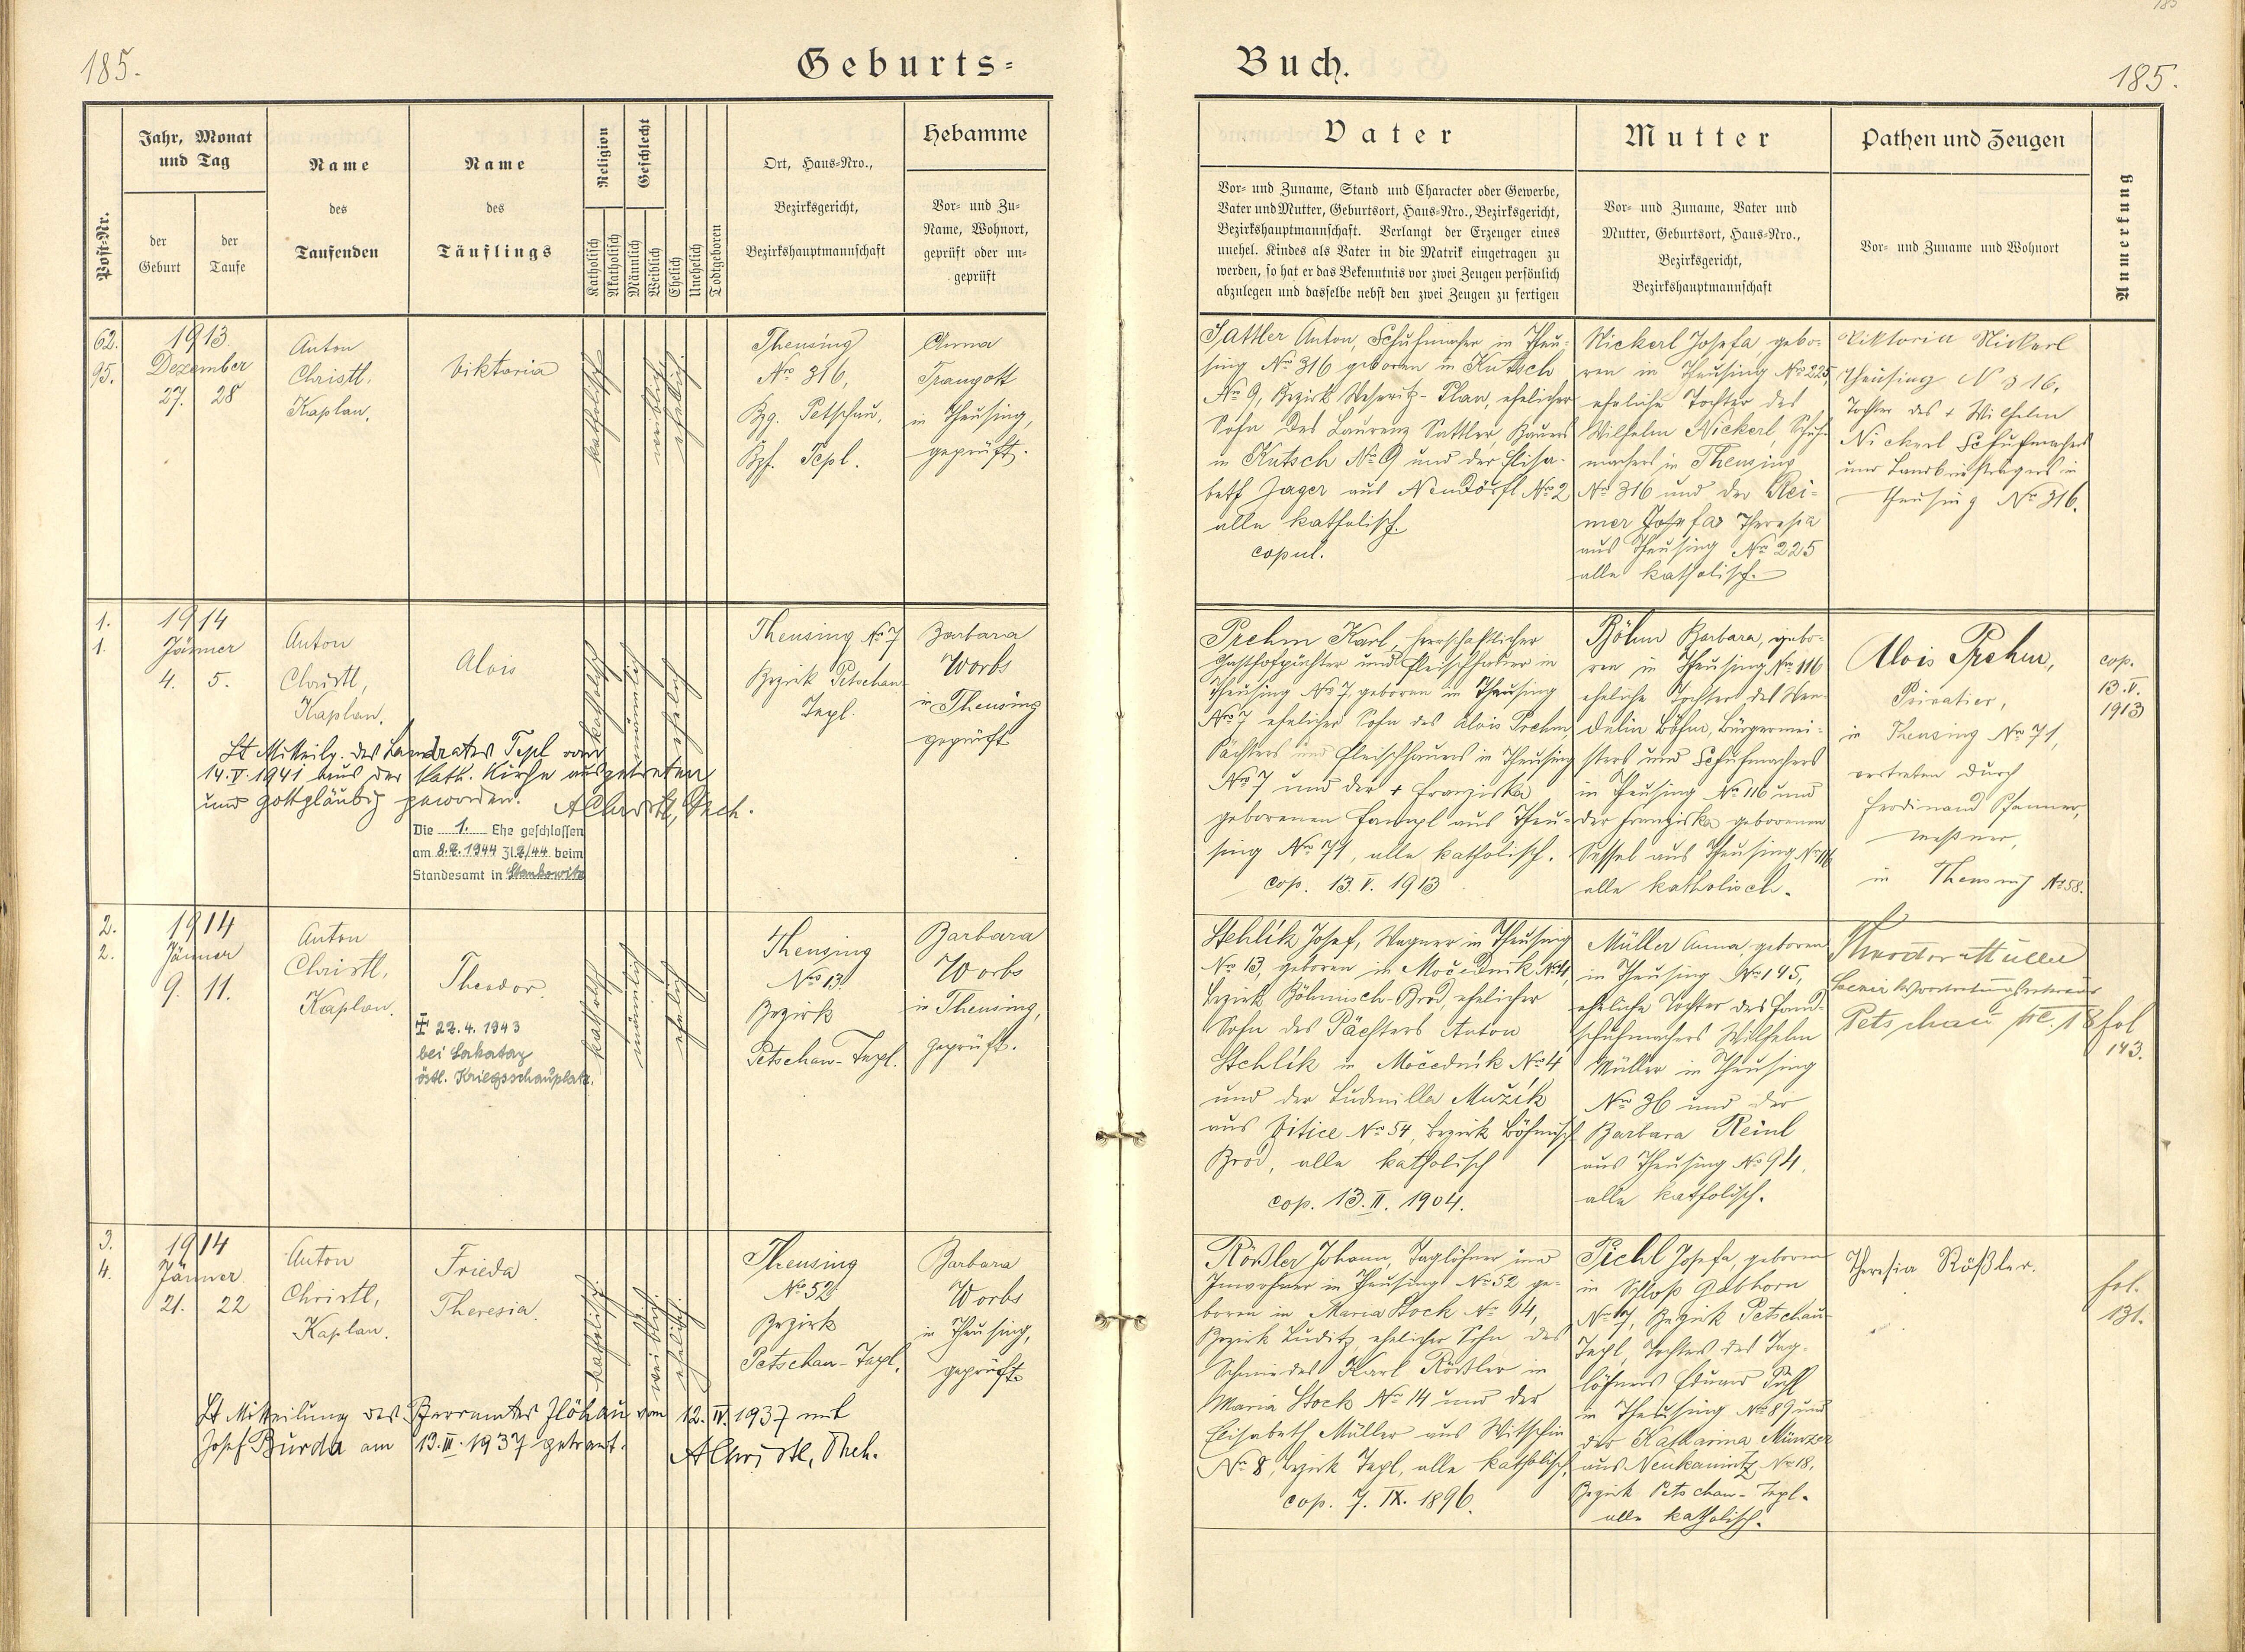 185.
Geburts=
Post-Nr.
Jahr, Monat
und Tag
der
Geburt
der
Taufe
Name
des
Taufenden
Name
des
Täuflings
Religion
Katholisch
Akatholisch
Geschlecht
Männlich
Weiblich
Ehelich
Unehelich
Todtgeboren
Ort, Haus-Nro.,
Bezirksgericht,
Bezirkshauptmannschaft
Hebamme
Vor- und Zu-
Name, Wohnort,
geprüft oder un-
geprüft
62.
95.
1913
Dezember
27. 28
Anton
Christl,
Kaplan.
Viktoria
katholisch
weiblich
ehelich.
Theusing
Nro 316,
Bzg. Petschau,
Bzh. Tepl.
Anna
Traugott
in Theusing,
geprüft.
1.
1.
1914
Jänner
4. 5.
Anton
Christl,
Kaplan.
Alois
katholisch
männlich
ehelich
Theusing No 7
Bezirk Petschau-
Tepl.
Barbara
Worbs
in Theusing
geprüft
Lt Mitteilg. des Landrates Tepl vom
14.V.1941 aus der kath. Kirche ausgetreten
und gottgläubig geworden. AChristl, Dech.
Die 1. Ehe geschlossen
am 8.2.1944 Zl.2/44 beim
Standesamt in Stankowitz
2.
2.
1914
Jänner
9. 11.
Anton
Christl,
Kaplan.
Theodor.
✠ 22.4.1943
bei
östl. Kriegsschauplatz.
katholisch
männlich
ehelich
Theusing
Nro 13
Bezirk
Petschau-Tepl.
Barbara
Worbs
in Theusing,
geprüft.
3.
4.
1914
Jänner
21. 22
Anton
Christl,
Kaplan.
Frieda
Theresia.
katholisch.
weiblich.
ehelich.
Theusing
No 52
Bezirk
Petschau-Tepl.
Barbara
Worbs
in Theusing,
geprüft
Lt Mitteilung des Pfarramtes Flöhau vom 12.IV.1937 mit
Josef Burda am 13.III.1937 getraut.
AChristl, Dech.
Buch.
185.
Vater
Vor- und Zuname, Stand und Character oder Gewerbe,
Vater und Mutter, Geburtsort, Haus-Nro., Bezirksgericht,
Bezirkshauptmannschaft. Verlangt der Erzeuger eines
unehel. Kindes als Vater in die Matrik eingetragen zu
werden, so hat er das Bekenntnis vor zwei Zeugen persönlich
abzulegen und dasselbe nebst den zwei Zeugen zu fertigen
Mutter
Vor- und Zuname, Vater und
Mutter, Geburtsort, Haus-Nro.,
Bezirksgericht,
Bezirkshauptmannschaft
Pathen und Zeugen
Vor- und Zuname und Wohnort
Anmerkung
Sattler Anton, Schuhmacher in Theu-
sing No 316 geboren in Kutsch
No 9, Bezirk Weseritz-Plan, ehelicher
Sohn des Laurenz Sattler, Bauers
in Kutsch No 9 und der Elisa-
beth Jager aus Neudörfl No 2
alle katholisch.
copul.
Nickerl Josefa, gebo-
ren in Theusing No 225,
eheliche Tochter des
Wilhelm Nickerl, Schuh-
machers in Theusing
No 316 und der Rei-
mer Josefa Theresia
aus Theusing No 225
alle katholisch.
Viktoria Nickerl
Theusing N 316,
Tochter des + Wilhelm
Nickerl Schuhmachers
und Landbriefträgers in
Theusing No 316.
Prehm Karl, herrschaftlicher
Gasthofpächter und Fleischhauer in
Theusing No 7, geboren in Theusing
No 7 ehelicher Sohn des Alois Prehm
Pächters und Fleischhauers in Theusing
No 7 und der + Franziska
geborenen Hampl aus Theu-
sing No 71, alle katholisch.
cop. 13.V.1913
Böhm Barbara, gebo-
ren in Theusing No 116
eheliche Tochter des Wen-
delin Böhm, Bürgermei-
sters und Schuhmachers
in Theusing No 116 und
der Franziska geborenen
Sessel aus Theusing No 116
alle katholisch.
Alois Prehm,
Privatier,
in Theusing No 71,
vertreten durch
Ferdinand Pfanner,
Meßner,
in Theusing No 58.
cop.
13.V.
1913
Stehlik Josef, Wagner in Theusing
No 13, geboren in Močednik No 4,
Bezirk Böhmisch-Brod, ehelicher
Sohn des Pächters Anton
Stehlik in Močednik No 4
und der Ludmilla Mužik
aus Vitice No 54, Bezirk Böhmisch
Brod, alle katholisch
cop. 13.II.1904.
Müller Anna, geboren
in Theusing No 145,
eheliche Tochter des Hand-
schuhmachers Wilhelm
Müller in Theusing
No 36 und der
Barbara Reinl
aus Theusing No 94,
alle katholisch.
Theodor Müller
Petschau No. 18
fol
143.
Rößler Johann, Taglöhner und
Inwohner in Theusing No 52 ge-
boren in Maria Stock No 14,
Bezirk Luditz, ehelicher Sohn des
Schmiedes Karl Rößler in
Maria Stock No 14 und der
Elisabeth Müller aus Witschin
No 8, Bezirk Tepl, alle katholisch,
cop. 7.IX.1896.
Pichl Josefa, geboren
in Schloß Gabhorn
No 17, Bezirk Petschau-
Tepl, Tochter des Tag-
löhners Eduard Pichl
in Theusing No 89 und
der Katharina Münzer
aus Neukaunitz No 18,
Bezirk Petschau-Tepl.
alle katholisch.
Theresia Rößler.
fol.
131.